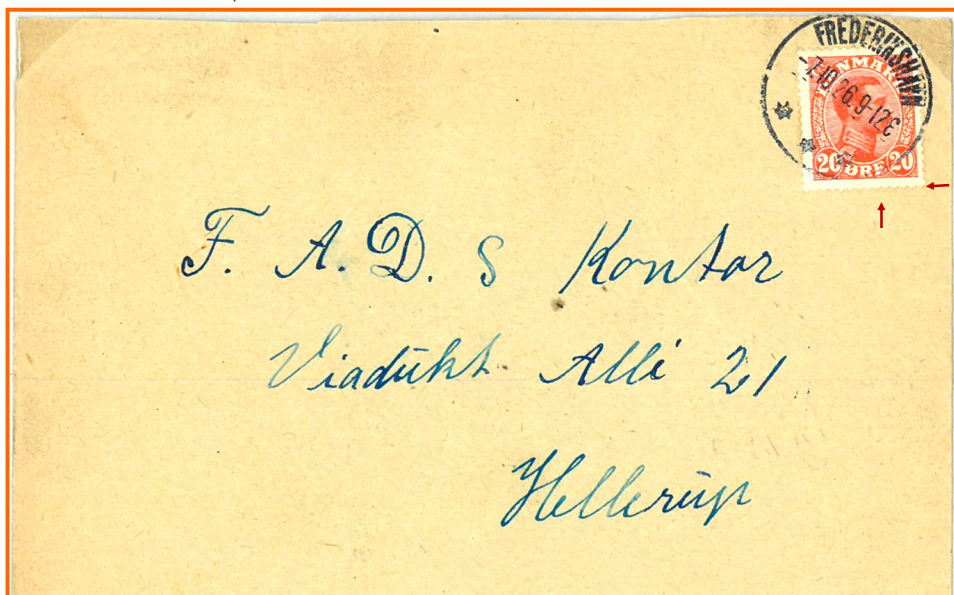 FREDERIKSHAVN
-7.10.26.9-12E
DANMARK
20 ØRE 20
F. A. D. S Kontor
Viadukt Alli 21
Hellerup